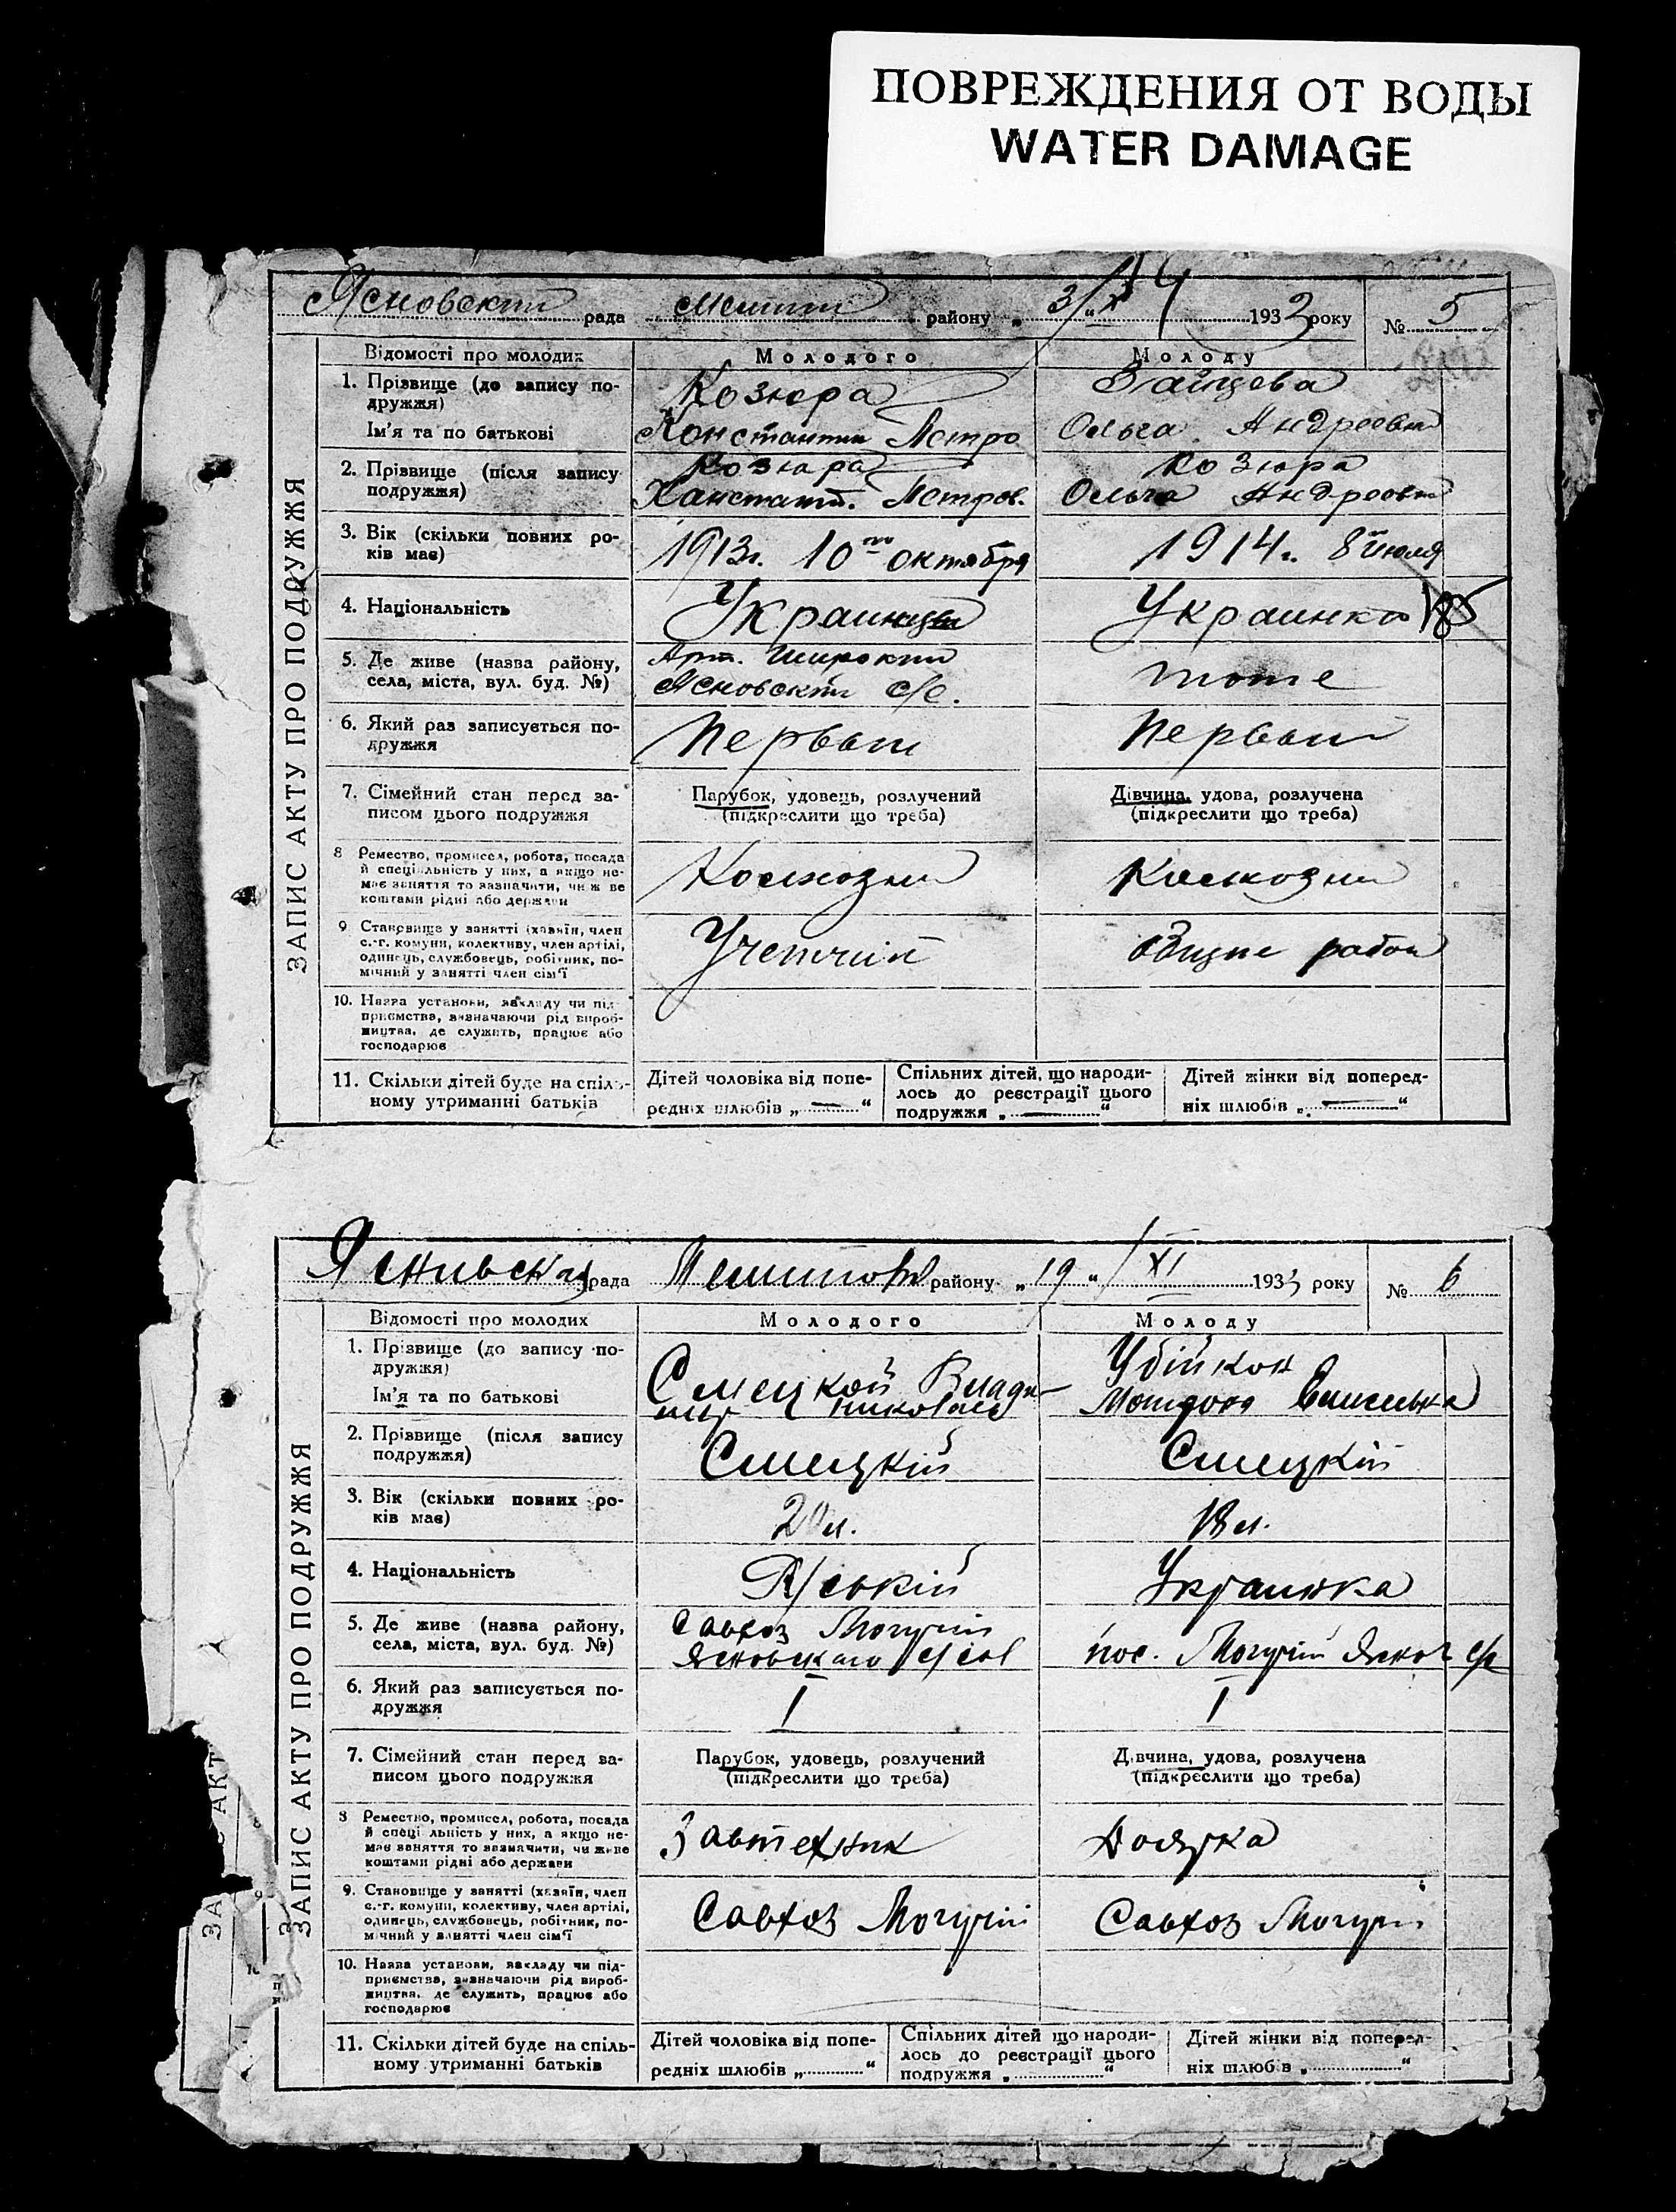 ПОВРЕЖДЕНИЯ ОТ ВОДЫ
WATER DAMAGE
Ясновский рада район у „ 3/X 1933 року № 5
Відомості про молодих Молодого Молоду
1. Прізвище (до запису подружжя) Козюра Зайцева
Ім'я та по батькові Константин Петро Ольга Андреевн
2. Прізвище (після запису подружжя) Козюра Козюра
Констант. Петров. Ольга Андреевн
3. Вік (скільки повних років має) 1913г. 10го октября 1914г. 8го июля
4. Національність Украинец Украинка
5. Де живе (назва району, села, міста, вул. буд. №) Арт. Широкий Ясновский с/с. тоже
6. Який раз записується подружжя Первый Первый
7. Сімейний стан перед записом цього подружжя Парубок, удовець, розлучений (підкреслити що треба) Дівчина, удова, розлучена (підкреслити що треба)
8 Ремество, промисел, робота, посада й спеціяльність у них, а якщо немає заняття то зазначити, чи ж ве коштами рідні або держави Колхозник Колхозни
9 Становище у занятті (хазяїн, член с.-г. комуни, колективу, член артілі, одинець, службовець, робітник, помічний у занятті член сім'ї Учетчик Общие работ
10. Назва установи, закладу чи підприємства, визначаючи рід виробництва, де служить, працює або господарює
11. Скільки дітей буде на спільному утриманні батьків Дітей чоловіка від попередніх шлюбів „ — “ Спільних дітей, що народилось до реєстрації цього подружжя „ — “ Дітей жінки від попередніх шлюбів „ — “
ЗАПИС АКТУ ПРО ПОДРУЖЖЯ
рада району „ 19 “ XI 1933 року № 6
Відомості про молодих Молодого Молоду
1. Прізвище (до запису подружжя)
Ім'я та по батькові Смецкой Владимир Николаев
2. Прізвище (після запису подружжя) Смецкій Смецкій
3. Вік (скільки повних років має) 20 л. 18 л.
4. Національність Руській Украинка
5. Де живе (назва району, села, міста, вул. буд. №) Савхоз Могучий Ясновского с/сов пос. Могучій Яснов с/с
6. Який раз записується подружжя I I
7. Сімейний стан перед записом цього подружжя Парубок, удовець, розлучений (підкреслити що треба) Дівчина, удова, розлучена (підкреслити що треба)
8 Ремество, промисел, робота, посада й спеціяльність у них, а якщо немає заняття то зазначити, чи живе коштами рідні або держави Доярка
9. Становище у занятті (хазяїн, член с.-г. комуни, колективу, член артілі, одинець, службовець, робітник, помічний у занятті член сім'ї Савхоз Могучій Савхоз Могучій
10. Назва установи, закладу чи підприємства, визначаючи рід виробництва, де служить, працює або господарює
11. Скільки дітей буде на спільному утриманні батьків Дітей чоловіка від попередніх шлюбів „ “ Спільних дітей що народилось до реєстрації цього подружжя „ “ Дітей жінки від попередніх шлюбів „ “
ЗАПИС АКТУ ПРО ПОДРУЖЖЯ